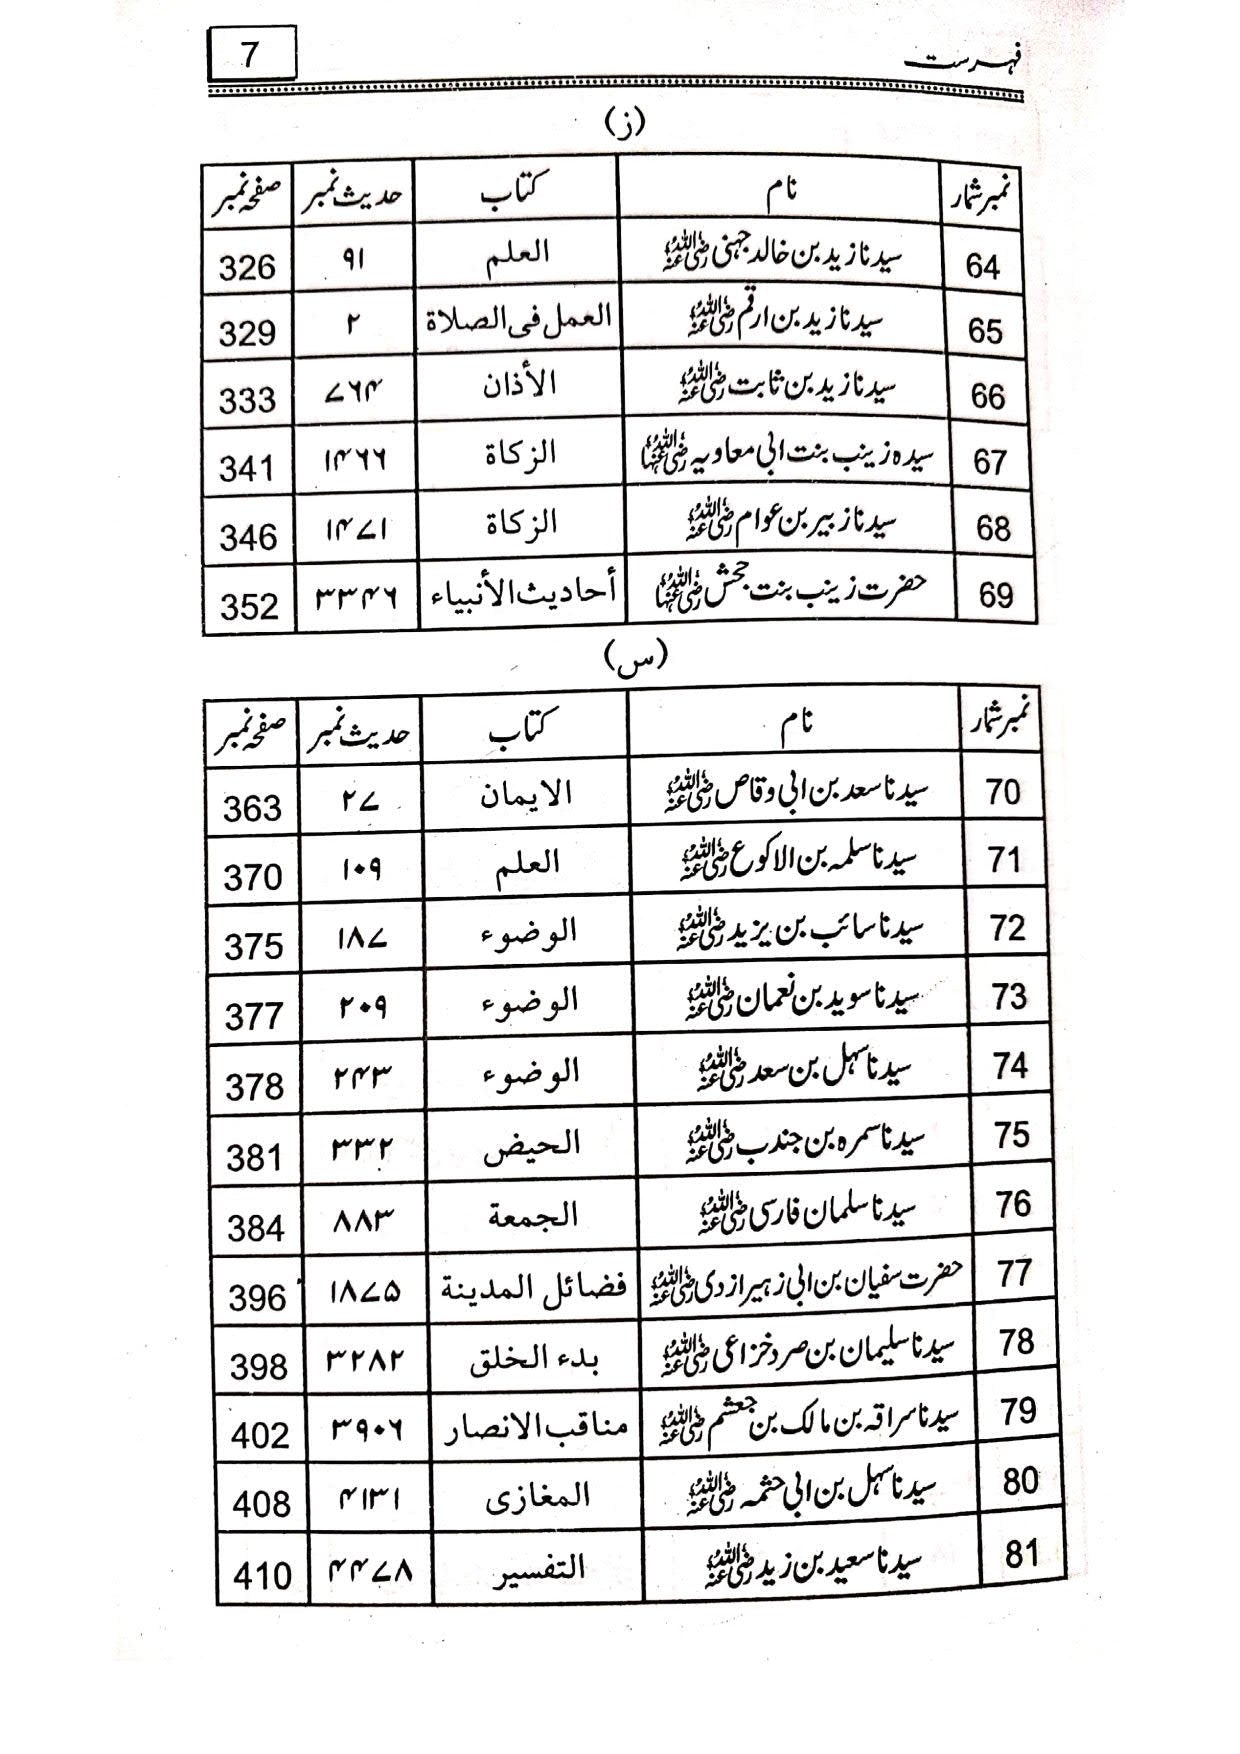 فہرست 7
(ز)
نمبر شمار نام کتاب حدیث نمبر صفحہ نمبر
64 سیدنا زید بن خالد جہنی رضی اللہ عنہ العلم ۹۱ 326
65 سیدنا زید بن ارقم رضی اللہ عنہ العمل فی الصلاة ۲ 329
66 سیدنا زید بن ثابت رضی اللہ عنہ الأذان ۷۶۴ 333
67 سیدہ زینب بنت ابی معاویہ رضی اللہ عنہا الزکاة ۱۴۶۶ 341
68 سیدنا زبیر بن عوام رضی اللہ عنہ الزکاة ۱۴۷۱ 346
69 حضرت زینب بنت جحش رضی اللہ عنہا أحادیث الأنبیاء ۳۳۴۶ 352
(س)
نمبر شمار نام کتاب حدیث نمبر صفحہ نمبر
70 سیدنا سعد بن ابی وقاص رضی اللہ عنہ الایمان ۲۷ 363
71 سیدنا سلمہ بن الاکوع رضی اللہ عنہ العلم ۱۰۹ 370
72 سیدنا سائب بن یزید رضی اللہ عنہ الوضوء ۱۸۷ 375
73 سیدنا سوید بن نعمان رضی اللہ عنہ الوضوء ۲۰۹ 377
74 سیدنا سہل بن سعد رضی اللہ عنہ الوضوء ۲۴۳ 378
75 سیدنا سمرہ بن جندب رضی اللہ عنہ الحیض ۳۳۲ 381
76 سیدنا سلمان فارسی رضی اللہ عنہ الجمعة ۸۸۳ 384
77 حضرت سفیان بن ابی زہیر ازدی رضی اللہ عنہ فضائل المدینة ۱۸۷۵ 396
78 سیدنا سلیمان بن صرد خزاعی رضی اللہ عنہ بدء الخلق ۳۲۸۲ 398
79 سیدنا سراقہ بن مالک بن جعشم رضی اللہ عنہ مناقب الانصار ۳۹۰۶ 402
80 سیدنا سہل بن ابی حثمہ رضی اللہ عنہ المغازی ۴۱۳۱ 408
81 سیدنا سعید بن زید رضی اللہ عنہ التفسیر ۴۴۷۸ 410